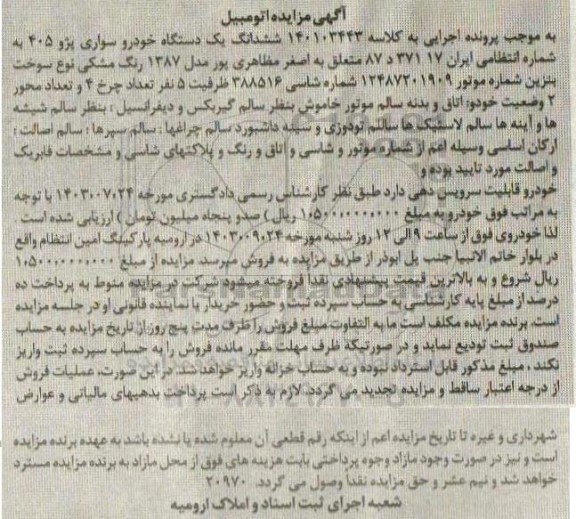 آگهی مزایده اتومبیل
به موجب پرونده اجرایی به کلاسه ۱۴۰۱۰۳۴۴۳ ششدانگ یک دستگاه خودرو سواری پژو ۴۰۵ به
شماره انتظامی ایران ۱۷ ۳۷۱ د ۸۷ متعلق به اصغر مظاهری پور مدل ۱۳۸۷ رنگ مشکی نوع سوخت
بنزین شماره موتور ۱۲۴۸۷۲۰۱۹۰۹ شماره شاسی ۳۸۸۵۱۶ ظرفیت ۵ نفر تعداد چرخ ۴ و تعداد محور
۲ وضعیت خودو: اتاق و بدنه سالم موتور خاموش بنظر سالم گیربکس و دیفرانسیل : بنظر سالم شیشه
ها و آینه ها سالم لاستیک ها سالم تودوزی و سینه داشبورد سالم چراغها : سالم سپرها : سالم اصالت :
ارکان اساسی وسیله اعم از شماره موتور و شاسی و اتاق و رنگ و پلاکتهای شاسی و مشخصات فابریک
و اصالت مورد تایید بوده و
خودرو قابلیت سرویس دهی دارد طبق نظر کارشناس رسمی دادگستری مورخه ۱۴۰۳.۰۷.۲۴ با توجه
به مراتب فوق خودرو به مبلغ ۱.۵۰۰.۰۰۰.۰۰۰ ریال ( صدو پنجاه میلیون تومان ) ارزیابی شده است .
لذا خودروی فوق از ساعت ۹ الی ۱۲ روز شنبه مورخه ۱۴۰۳.۰۹.۲۴ در ارومیه پارکینگ امین انتظام واقع
در بلوار خاتم الانبیا جنب پل ابوذر از طریق مزایده به فروش میرسد. مزایده از مبلغ ۱.۵۰۰.۰۰۰.۰۰۰
ریال شروع و به بالاترین قیمت پیشنهادی نقداً فروخته میشود شرکت در مزایده منوط به پرداخت ده
درصد از مبلغ پایه کارشناسی به حساب سپرده ثبت و حضور خریدار یا نماینده قانونی او در جلسه مزایده
است. برنده مزایده مکلف است ما به التفاوت مبلغ فروش را ظرف مدت پنج روز از تاریخ مزایده به حساب
صندوق ثبت تودیع نماید و در صورتیکه ظرف مهلت مقرر مانده فروش را به حساب سپرده ثبت واریز
نکند . مبلغ مذکور قابل استرداد نبوده و به حساب خزانه واریز خواهد شد در این صورت، عملیات فروش
از درجه اعتبار ساقط و مزایده تجدید می گردد. لازم به ذکر است پرداخت بدهیهای مالیاتی و عوارض
شهرداری و غیره تا تاریخ مزایده اعم از اینکه رقم قطعی آن معلوم شده یا نشده باشد به عهده برنده مزایده
است و نیز در صورت وجود مازاد وجوه پرداختی بابت هزینه های فوق از محل مازاد به برنده مزایده مسترد
خواهد شد و نیم عشر و حق مزایده نقداً وصول می گردد. ۲۰۹۷۰
شعبه اجرای ثبت اسناد و املاک ارومیه